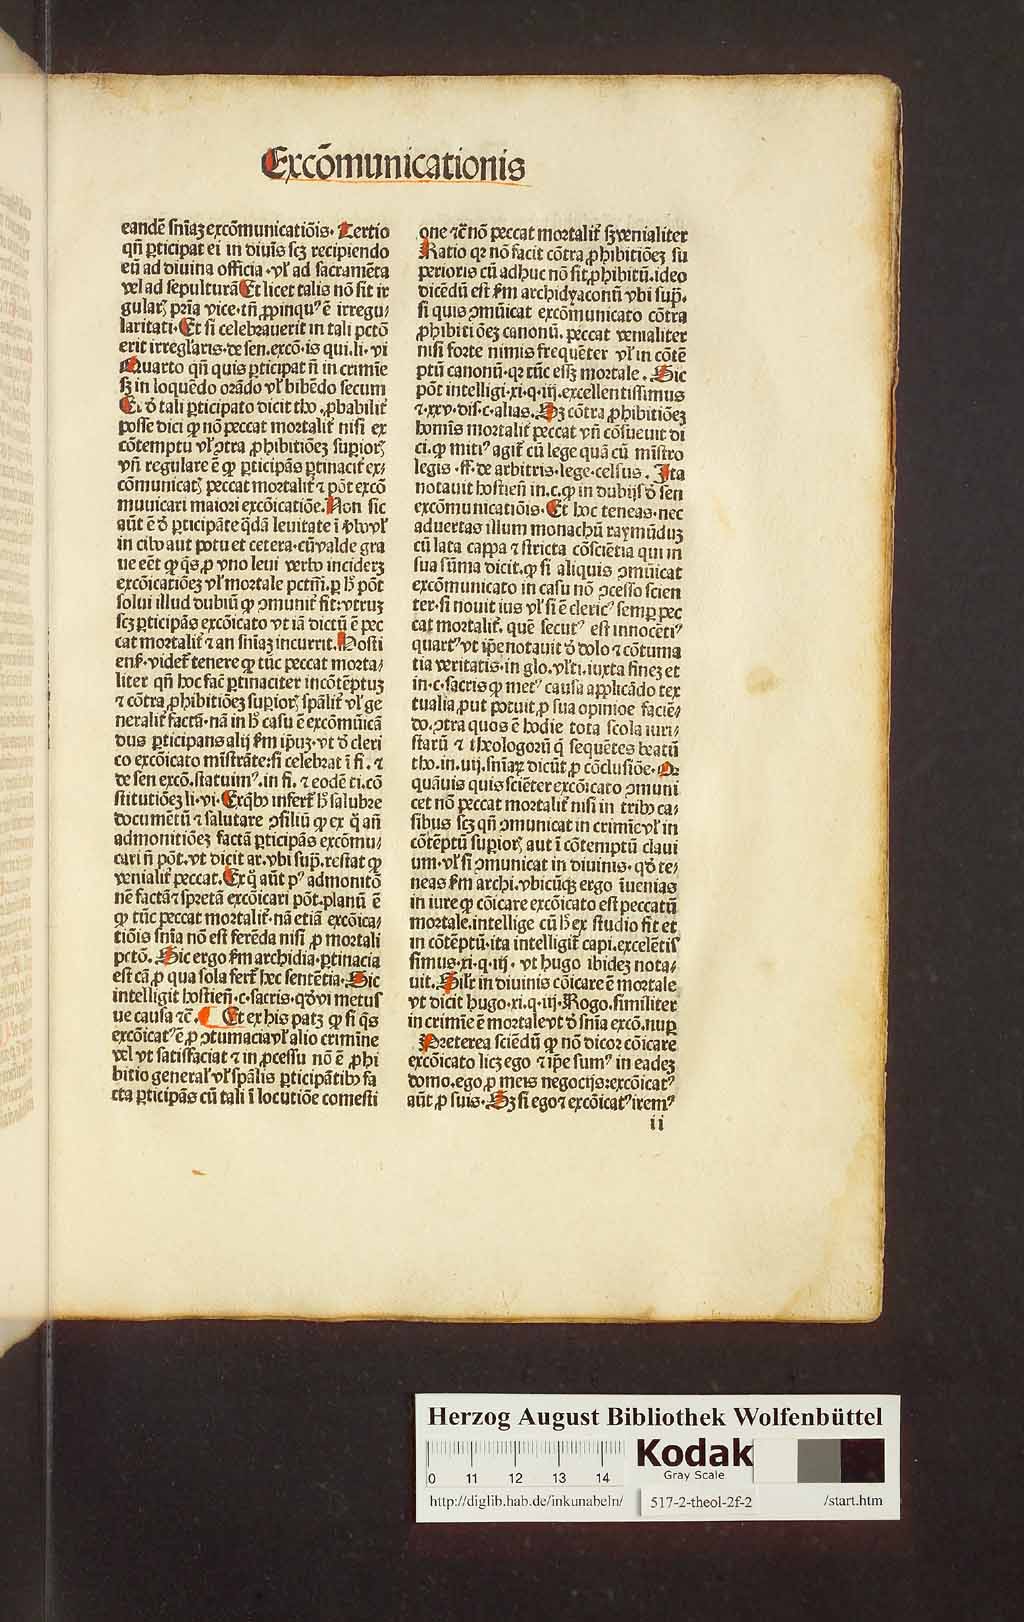 Excōmunicationis
eandē sn̄iaꝫ excōmunicatiōis. Tertio
qn̄ ꝑticipat ei in diuīs scꝫ recipiendo
eū ad diuina officia. vl̕ ad sacramēta
vel ad sepulturā Et licet talis nō sit ir
gularꝭ pr̄ia vice. tn̄ ꝓpinquꝰ ē irregu⸗
laritati. Et si celebrauerit in tali pctō
erit irregl̕aris. de sen. excō. is qui. li. vi
Quarto qn̄ quis ꝑticipat n̄ in crimīe
sꝫ in loquēdo orādo vl̕ bibēdo secum
Et ꝺ̓ tali ꝑticipato dicit tho. ꝓbabilit̕
posse dici ꝙ nō peccat mortalit̕ nisi ex
cōtemptu vl̕ ꝯtra ꝓhibitiōeꝫ supiorꝭ
vn̄ regulare ē ꝙ ꝑticipās ꝑtinacit̕ ex⸗
cōmunicatꝭ peccat mortalit̕ ⁊ pōt excō
muuicari maiori excōicatiōe. Non sic
aūt ē ꝺ̓ ꝑticipāte q̇dā leuitate ī vbo vl̕
in cibo aut potu et cetera. cū valde gra
ue eēt ꝙ q̇s ꝓ vno leui verbo incideꝫ
excōicatiōeꝫ vl̕ mortale pctm̄. ꝑ hꝰ pōt
solui illud dubiū ꝙ ꝯmunit̕ fit: vtruꝫ
scꝫ ꝑticipās excōicato vt iā dictū ē pec
cat mortalit̕ ⁊ an sn̄iaꝫ incurrit. Hosti
enẜ. videt̕ tenere ꝙ tūc peccat morta⸗
liter qn̄ hoc fac̄ ꝑtinaciter incōtēptuꝫ
⁊ cōtra ꝓhibitiōeꝫ supiorꝭ sp̄alit̕ vl̕ ge
neralit̕ factā. nā in hꝰ casu ē excōmūicā
dus ꝑticipans alij ẜm ip̄uꝫ. vt ꝺ̓ cleri
co excōicato mīstrāte: si celebrat ī fi. ⁊
de sen excō. statuimꝰ. in fi. ⁊ eodē ti. cō
stitutiōeꝫ li. vi. Exq̇bꝰ infert̕ hꝰ salubre
documētū ⁊ salutare ꝯsiliū ꝙ ex q̊ an̄
admonitiōeꝫ factā ꝑticipās excōmu⸗
cari n̄ pōt. vt dicit ar. vbi sup̄. restat ꝙ
venialit̕ peccat. Ex q̊ aūt pꝰ admonitō
nē factā ⁊ spretā excōicari pōt. planū ē
ꝙ tūc peccat mortalit̕. nā etiā excōica⸗
tiōis sn̄ia nō est ferēda nisi ꝓ mortali
pctō. Sic ergo ẜm archidia. ꝑtinacia
est cā ꝓ qua sola fert̕ hec sentētia. Sic
intelligit hostien̄. c. sacris. qd̕ vi metus
ue causa ⁊c̄. Et ex his patꝫ ꝙ si q̇s
excōicatꝰ ē ꝓ ꝯtumacia vl̕ alio crimīne
vel vt satisfaciat ⁊ in ꝓcessu nō ē ꝓhi
bitio general̕ vl̕ sp̄alis ꝑticipātibꝰ fa
cta ꝑticipās cū tali ī locutiōe comesti
one ⁊c̄ nō peccat mortalit̕ sꝫ venialiter
Ratio qꝛ nō facit cōtra ꝓhibitiōeꝫ su
perioris cū adhuc nō sit ꝓhibitū. ideo
dicēdū est ẜm archidyaconū vbi sup̄.
si quis ꝯmūicat excōmunicato cōtra
ꝓhibiti ōeꝫ canonū. peccat venialiter
nisi forte nimis frequēter vl̕ in cōtē
ptū canonū. qꝛ tūc esset mortale. Sic
pōt intelligi. xi. q. iij. excellentissimus
⁊. xxv. dis. c. alias. Sꝫ cōtra ꝓhibitiōeꝫ
homīs mortalit̕ peccat vn̄ cōsueuit di
ci. ꝙ mitiꝰ agit̕ cū lege quā cū mīstro
legis. ff. de arbitris. lege. celsus. Ita
notauit hostien̄ in. c. ꝙ in dubijs ꝺ̓ sen
excōmunicatiōis. Et hoc teneas. nec
aduertas illum monachū raymūduꝫ
cū lata cappa ⁊ stricta cōsciētia qui in
sua sūma dicit. ꝙ si aliquis ꝯmūicat
excōmunicato in casu nō ꝯcesso scien
ter. si nouit ius vl̕ si ē clericꝰ semꝑ pec
cat mortalit̕. quē secutꝰ est innocētiꝰ
quartꝰ vt ip̄e notauit ꝺ̓ dolo ⁊ cōtuma
tia veritatis. in glo. vl̕ti. iuxta fineꝫ et
in. c. sacris ꝙ metꝰ causa applicādo tex
tualia ꝓut potuit. ꝓ sua opinioe faciē⸗
do. ꝯtra quos ē hodie tota scola iuri⸗
starū ⁊ theologorū q̄ sequētes beatū
tho. in. iiij. sn̄iaꝝ dicūt ꝓ cōclusiōe. Qꝛ
quāuis quis sciēter excōicato ꝯmuni
cet nō peccat mortalit̕ nisi in tribꝰ ca⸗
sibus scꝫ qn̄ ꝯmunicat in crimīe vl̕ in
cōtēptū supiorꝭ aut ī cōtemptū claui
um. vl̕ si ꝯmunicat in diuinis. qd̕ te⸗
neas ẜm archi. vbicūqꝫ ergo īuenias
in iure ꝙ cōicare excōicato est peccatū
mortale. intellige cū hꝰ ex studio fit et
in cōtēptū. ita intelligit̕ capi. excelētis
simus. xi. q. iij. vt hugo ibideꝫ nota⸗
uit. Silr̄ in diuinis cōicare ē mortale
vt dicit hugo. xi. q. iij. Rogo. similiter
in crimīe ē mortale vt ꝺ̓ sn̄ia excō. nuꝑ
Preterea sciēdū ꝙ nō dicoꝛ cōicare
excōicato licꝫ ego ⁊ ip̄e sumꝰ in eadeꝫ
domo. ego ꝓ meis negocijs: excōicatꝰ
aūt ꝓ suis. Sꝫ si ego ⁊ excōicatꝰ iremꝰ
ii
Herzog August Bibliothek Wolfenbüttel
Kodak
Gray Scale
0 11 12 13 14
http://diglib.hab.de/inkunabeln/ 517-2-theol-2f-2 /start.htm